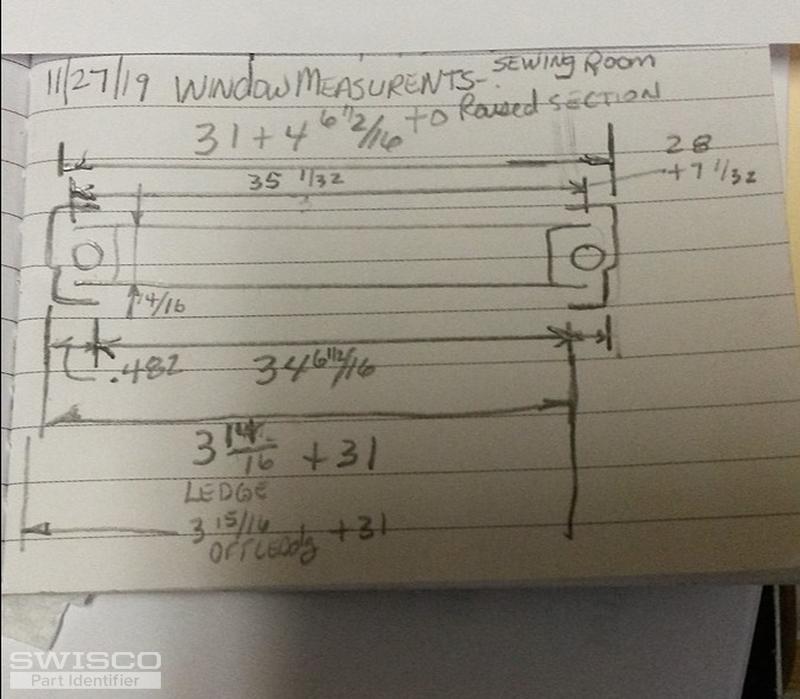 11/27/19 WINDOW MEASURENTS- SEWING ROOM
31 + 4 6 1/2/16 TO Raised SECTION
28
35 1/32
+7 1/32
14/16
.482
34 6 1/2/16
3 14/16 + 31
LEDGE
3 15/16 + 31
OFF LEDG
SWISCO
Part Identifier